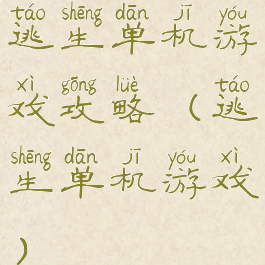 táo shēng dān jī yóu
逃生单机游
xì gōng lüè táo
戏攻略（逃
shēng dān jī yóu xì
生单机游戏
）